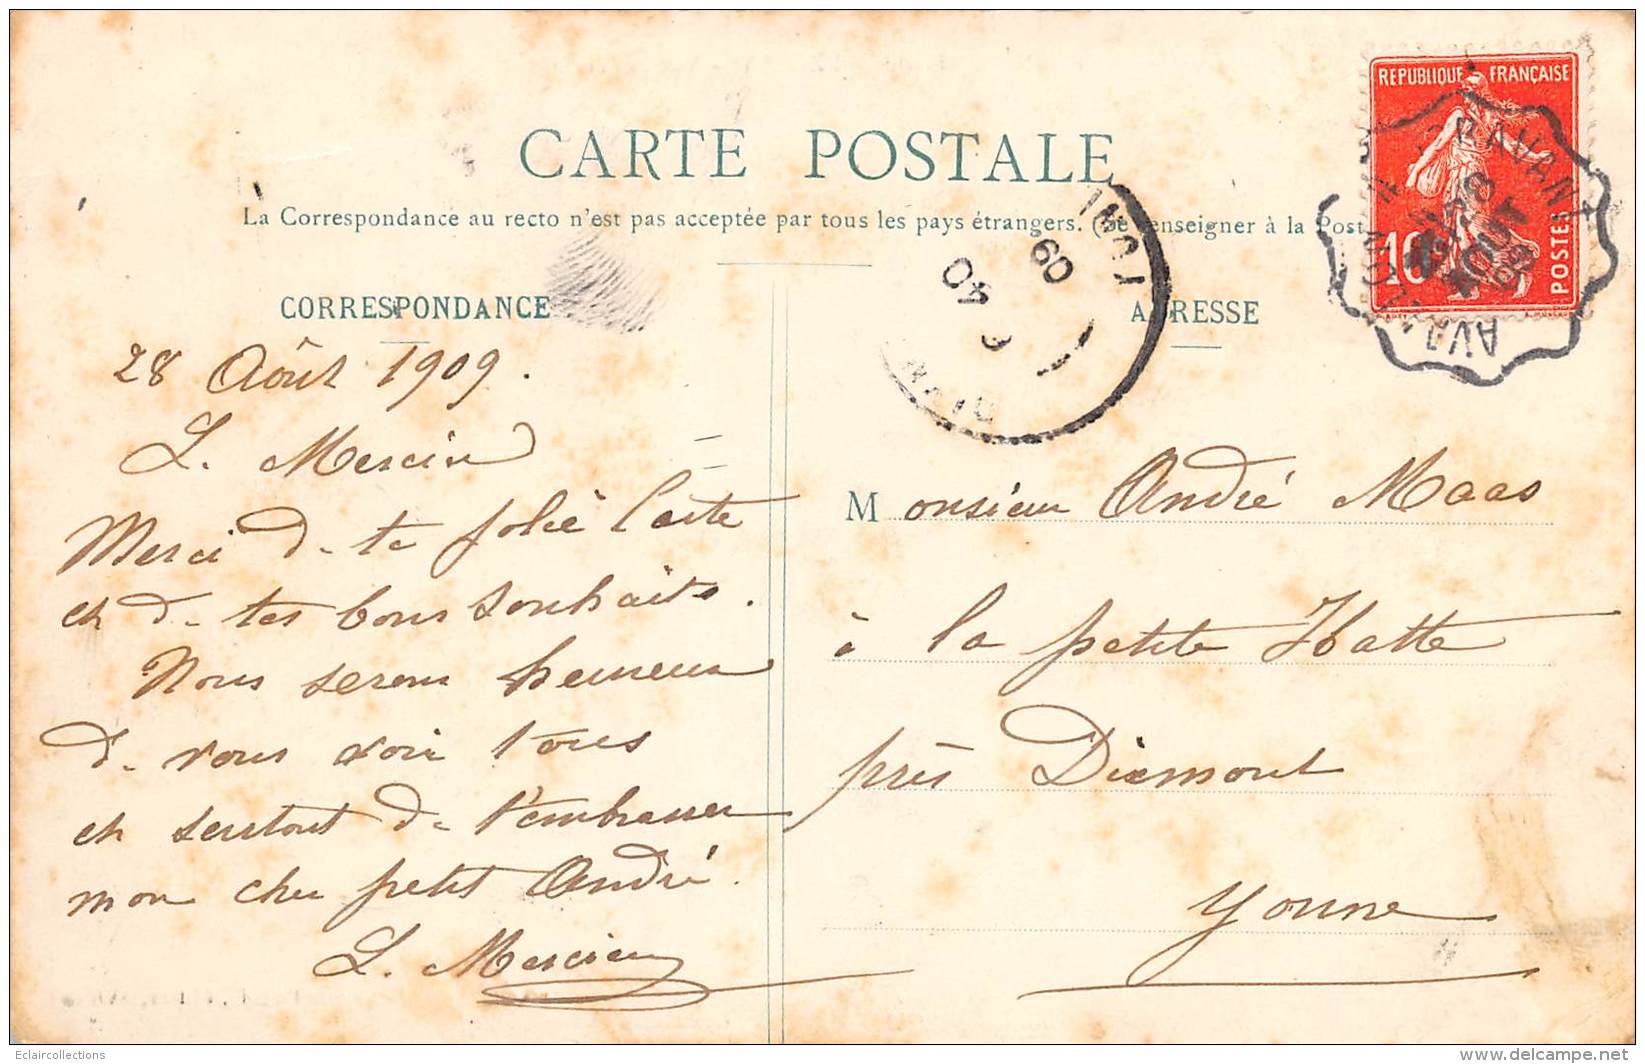 CARTE POSTALE
La Correspondance au recto n'est pas acceptée par tous les pays étrangers. (Se renseigner à la Post
CORRESPONDANCE
ADRESSE
REPUBLIQUE FRANÇAISE
10
POSTES
28 Août 1909.
L. Mercier
Merci de ta jolie Carte
et de tes bons souhaits.
Nous serons heureux
de vous voir tous
et surtout de t'embrasser
mon cher petit André.
L. Mercier
Monsieur André Maas
à la petite Hatte
près Dixmont
Yonne
Eclaircollections
delcampe.net